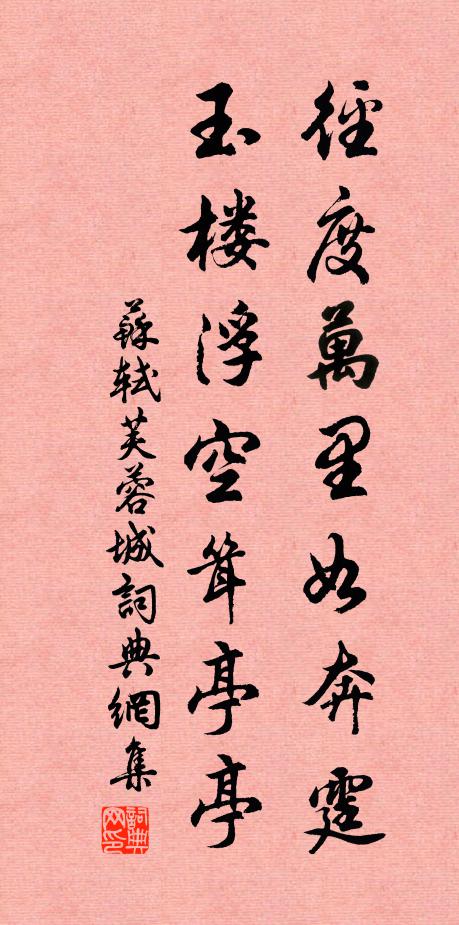 徑度萬里如奔霆
玉楼浮空聳亭亭
蘇軾芙蓉城詞典網集
詞典网印